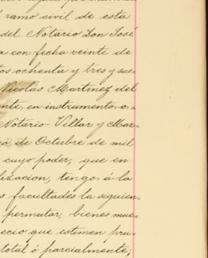 ramo civil de esta
del Notario Don José
con fecha veinte de
tos ochenta y tres y sus-
Nicolas Martinez del
nte, en instrumento o-
Notario Villar y Mar-
de Octubre de mil
cuyo poder, que en
lizacion, tengo á la
s facultades la siguien-
permutar, bienes mue-
ecio que estimen jus-
total ó parcialmente;